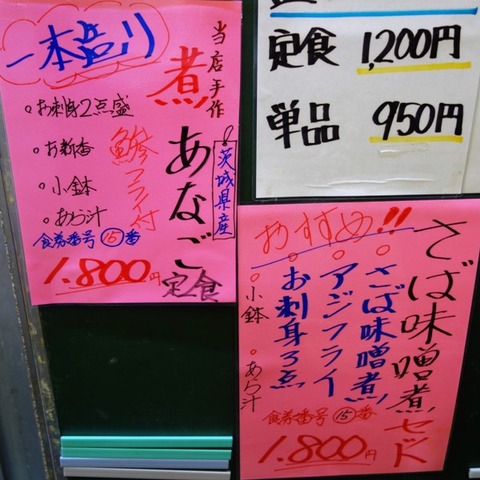 一本造り
当店手作
煮あなご定食
茨城県産
○お刺身2点盛
○お新香
○小鉢
○あら汁
鯵フライ付
食券番号⑮番
1.800円
定食 1,200円
単品 950円
おすすめ!!
さば味噌煮セット
○さば味噌煮
○アジフライ
○お刺身3点
○小鉢
○あら汁
食券番号⑮番
1.800円